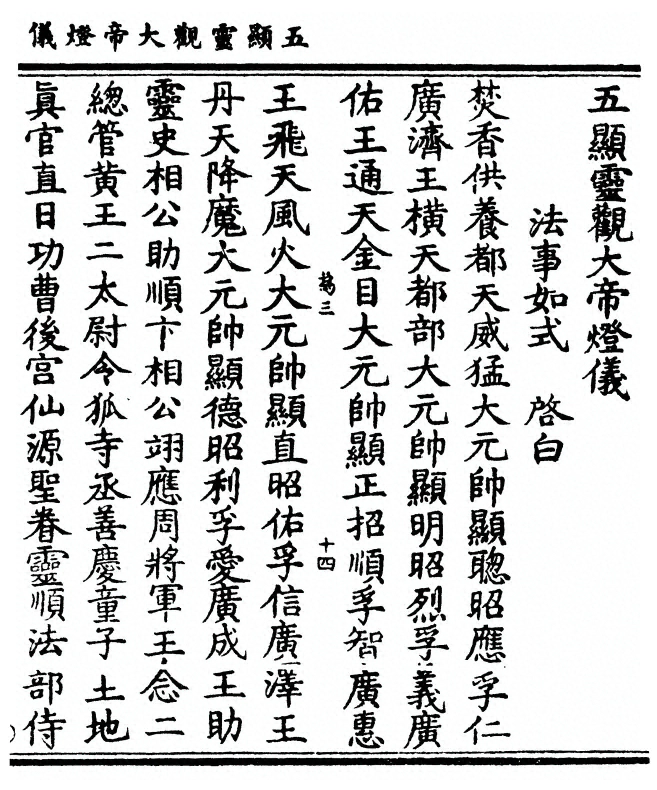 五顯靈觀大帝燈儀
五顯靈觀大帝燈儀
法事如式　啓白
焚香供養都天威猛大元帥顯聰昭應孚仁
廣濟王橫天都部大元帥顯明昭烈孚義廣
佑王通天金目大元帥顯正招順孚智廣惠
三
十四
王飛天風火大元帥顯直昭佑孚信廣澤王
丹天降魔大元帥顯德昭利孚愛廣成王助
靈史相公助順卞相公翊應周將軍王念二
總管黃王二太尉令狐寺丞善慶童子土地
眞官直日功曹後宮仙源聖眷靈順法部侍